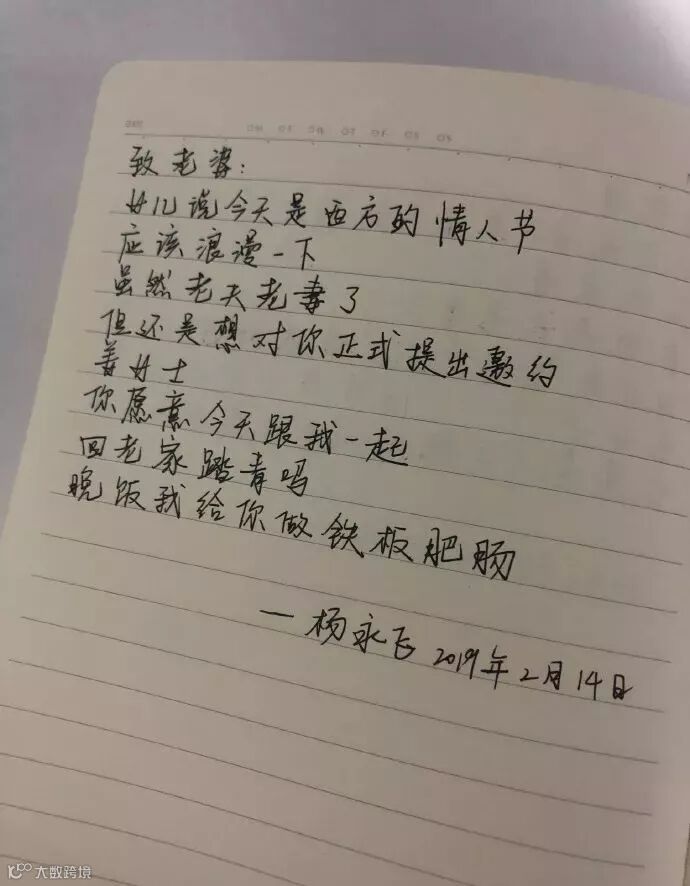 致老婆：
女儿说今天是西方的情人节
应该浪漫一下
虽然老夫老妻了
但还是想对你正式提出邀约
姜女士
你愿意今天跟我一起
回老家踏青吗
晚饭我给你做铁板肥肠
—杨永飞 2019年2月14日
大数跨境